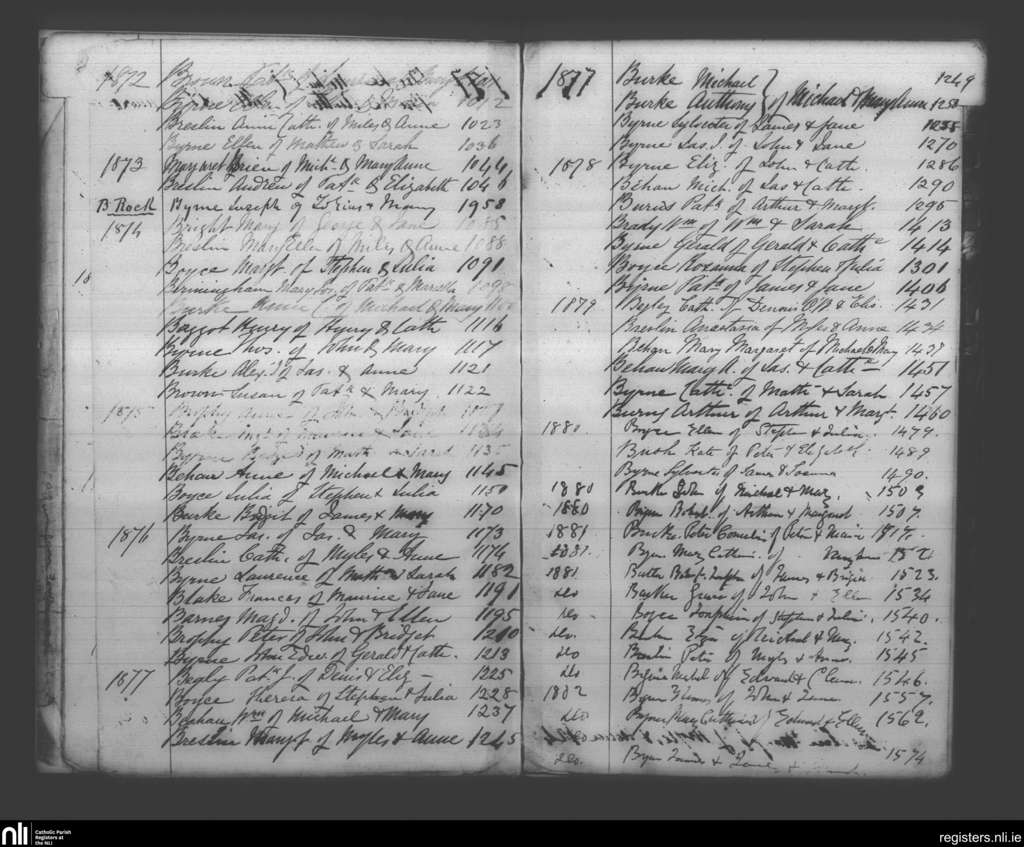 1872
1012
Breslin Annie Cath. of Miles & Anne 1023
Byrne Ellen of Mathew & Sarah 1036
1873 Margaret Brien of Mich. & Mary Anne 1044
Breslin Andrew of Patk & Elizabeth 1046
B Rock Byrne Joseph of Tobias & Mary 1958
1874 Bright Mary of George & Jane 1085
Breslin Mary Ellen of Miles & Anne 1088
Boyce Margt. of Stephen & Julia 1091
18 Birmingham Mary of Patk. & 1098
Burke Annie of Michael & Mary
Baggot Henry of Henry & Cath 1116
Byrne Thos. of John & Mary 1117
Burke Alexd. of Jas. & Anne 1121
Brown Susan of Patk. & Mary 1122
1875 Brophy Anne of John & Bridget
Blake of Maurice & Jane
Byrne of Matt & Sarah 1135
Behan Anne of Michael & Mary 1145
Boyce Julia of Stephen & Julia 1150
Burke Bridgt of James & Mary 1170
1876 Byrne Jas. of Jas. & Mary 1173
Breslin Cath. of Myles & Anne 1174
Byrne Laurence of Matt & Sarah 1182
Blake Frances of Maurice & Jane 1191
Barney Magd. of John & Ellen 1195
Brophy Peter of John & Bridget 1210
Byrne of Gerald & Cath. 1213
1877 Begly Patk J. of Denis & Eliz 1225
Boyce Theresa of Stephen & Julia 1228
Behan Wm of Michael & Mary 1237
Breslin Margt of Myles & Anne 1245
1877 Burke Michael } 1249
Burke Anthony } of Michael & Mary Anne 1250
Byrne Sylvester of James & Jane 1255
Byrne Jas. J. of John & Jane 1270
1878 Byrne Eliz of John & Cath 1286
Behan Mich. of Jas & Cath. 1290
Patk of Arthur & Margt. 1295
Brady Wm of Wm & Sarah 1413
Byrne Gerald of Gerald & Cathe 1414
Boyce Rosanna of Stephen & Julia 1301
Byrne Patk. of James & Jane 1406
1879 Begley Cath. of Dennis & Elis. 1431
Breslin Anastasia of Myles & Anne 1434
Behan Mary Margaret of Michael & Mary 1437
Behan Mary A. of Jas. & Cathe 1451
Byrne Cath. of Matt & Sarah 1457
Burns Arthur of Arthur & Margt. 1460
1880 Boyce Ellen of Stephen & Julia 1479.
Brook Kate of Peter & Elizabeth 1489
Byrne Sylvester of James & Joanna 1490.
1880 Burke John of Michael & Mary. 1503
1880 Byrne Robert of Arthur & Margaret 1507.
1881 Burke Peter Cornelius of Peter & Maria
1881 Byrne Mary Catherine of Vaughan
1881 Butler Robert Joseph of James & Brigid 1523.
do Grace of John & Ellen 1534
do Boyce Josephine of Stephen & Julia 1540.
do. Behan Eliza of Michael & Mary. 1542.
do Breslin Peter of Myles & Anne. 1545
do Byrne Michael of Edward & Ellen. 1546.
1882 Byrne of John & 1557.
do Byrne Mary Catherine of Edward & Ellen 1562.
do. Byrne James & 1574
nli Catholic Parish
Registers at
the NLI
registers.nli.ie